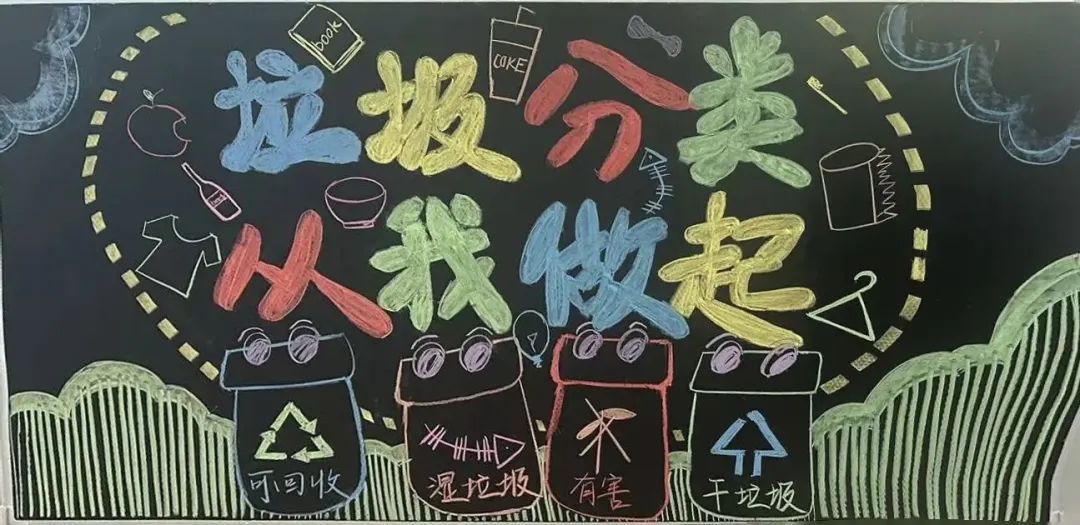 book
COKE
垃圾分类
从我做起
可回收
湿垃圾
有害
干垃圾